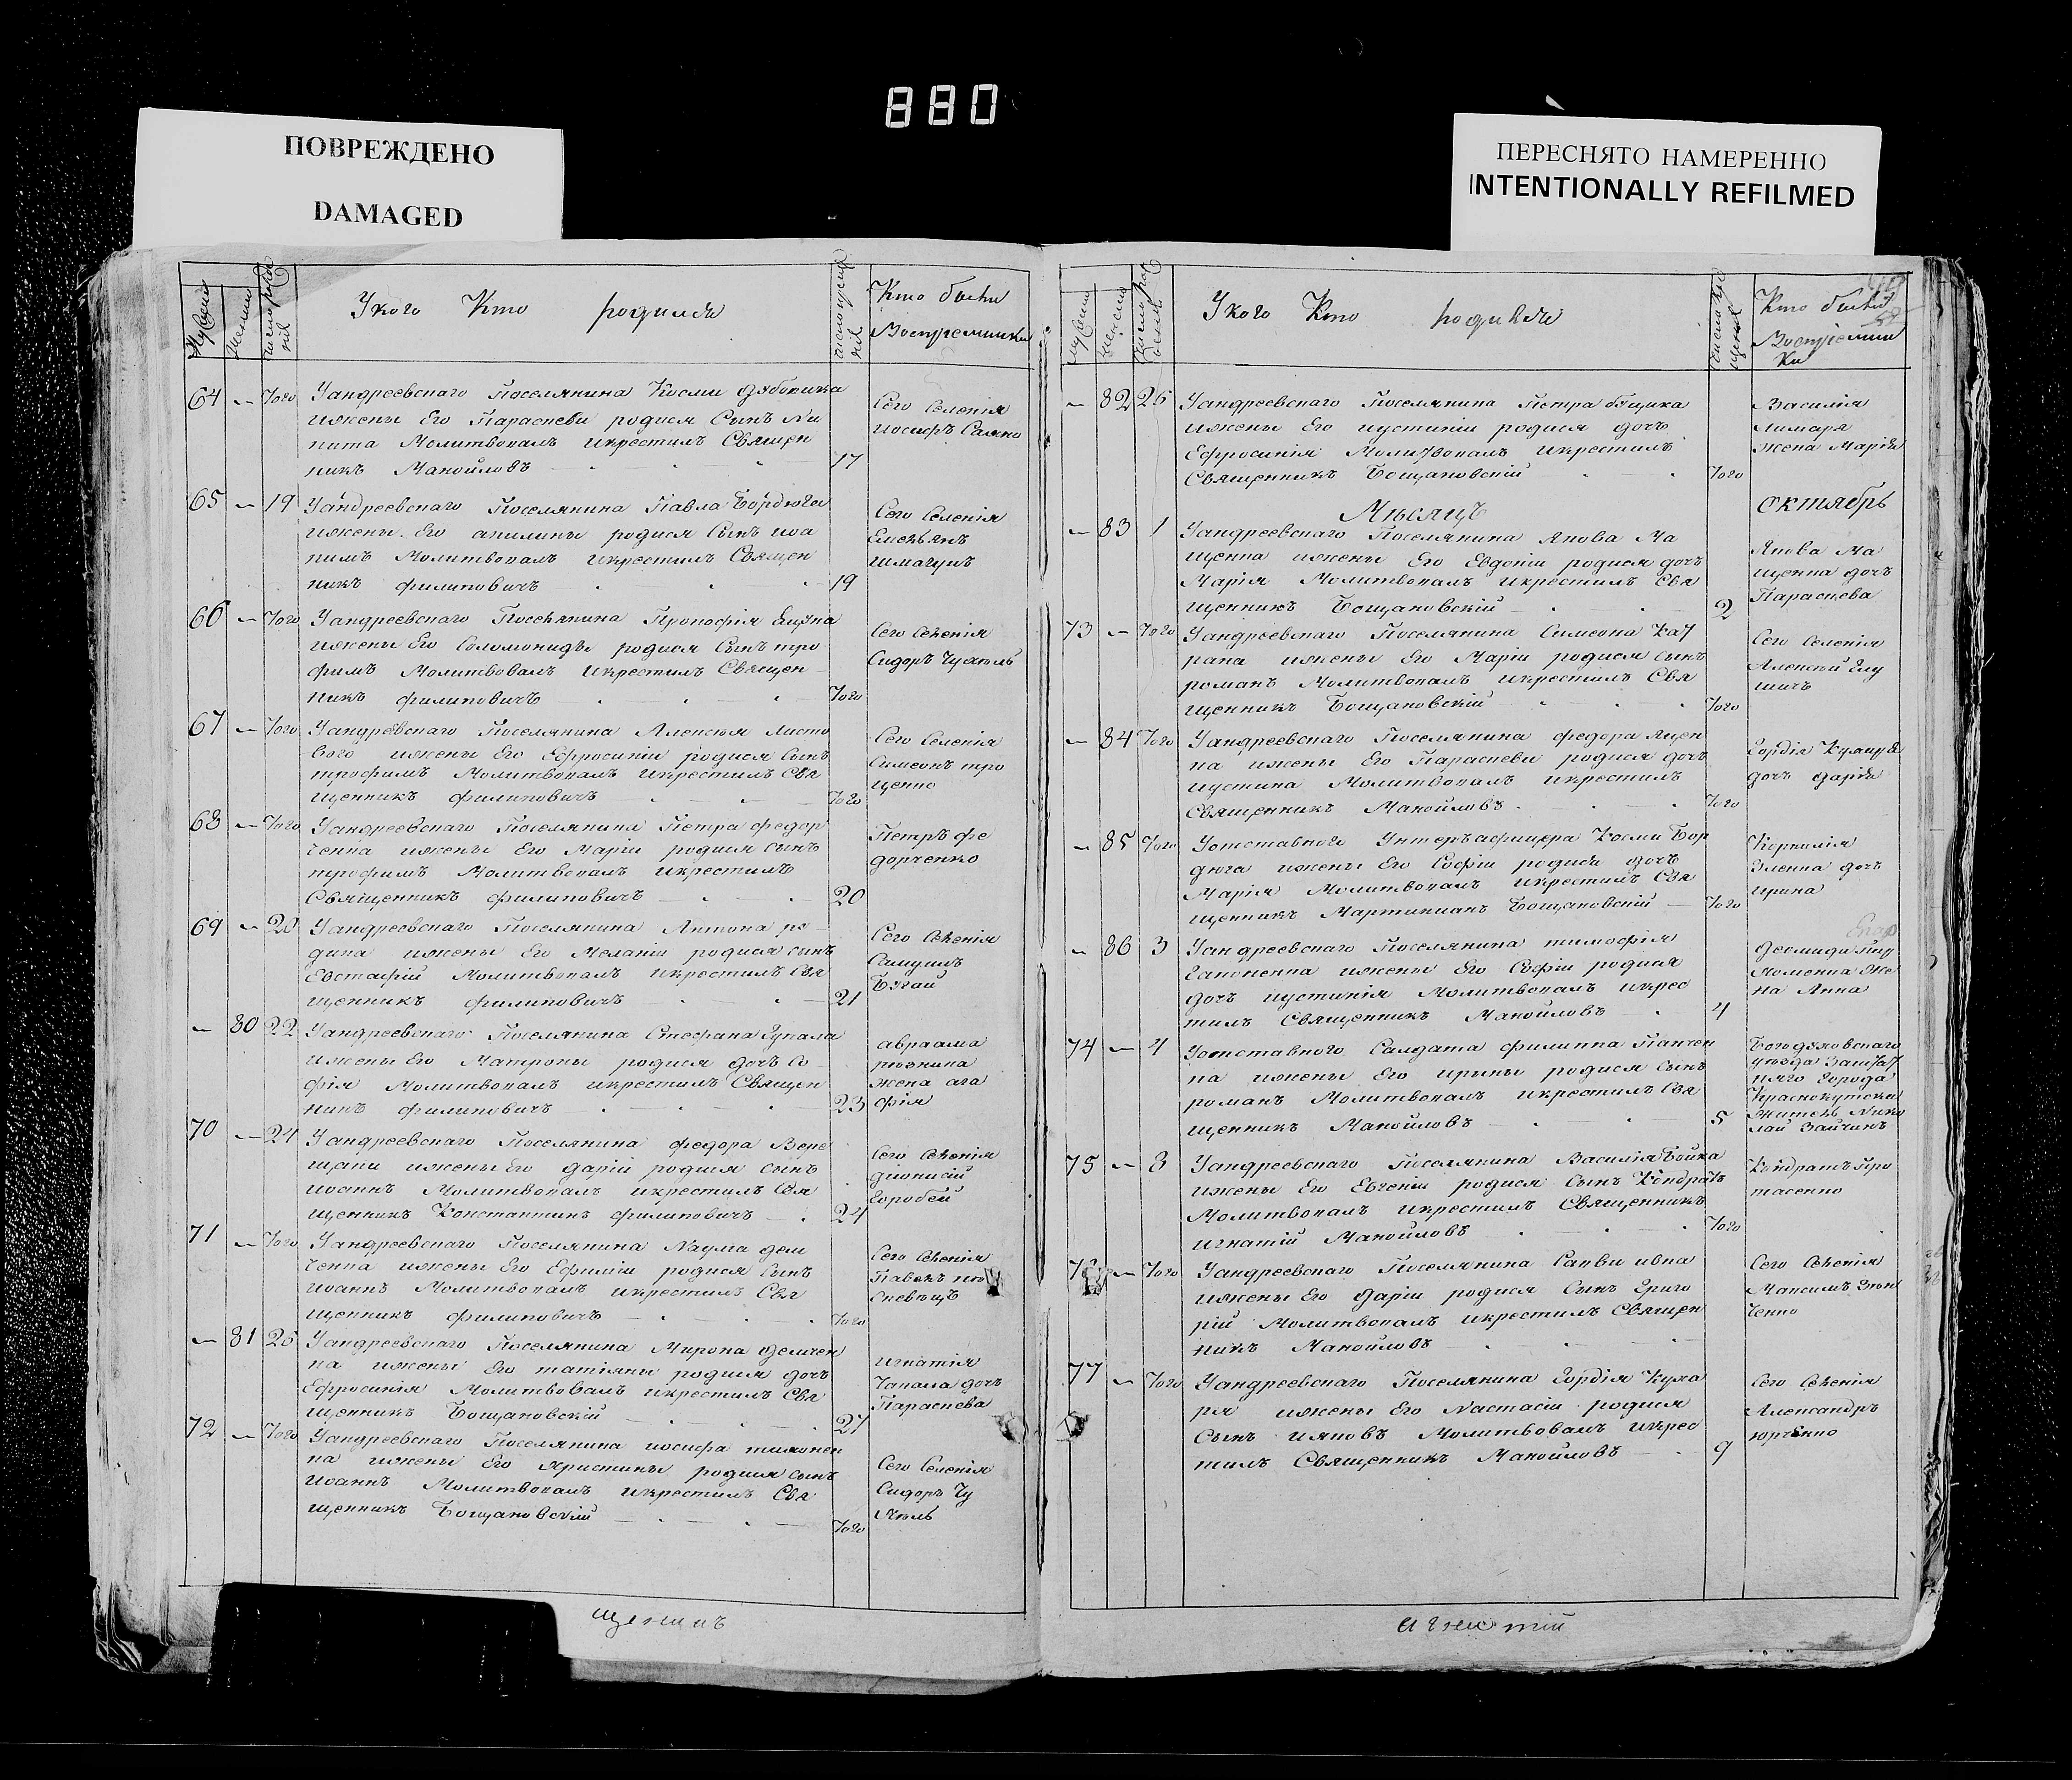 880
ПОВРЕЖДЕНО
DAMAGED
ПЕРЕСНЯТО НАМЕРЕННО
INTENTIONALLY REFILMED
Укого Кто родился
Кто были
Восприемники
64 — того Уандреевского Поселянина Косми
ижены Его Параскеви родися Сынъ Ни
кита Молитвовалъ икрестилъ Священ
никъ Манойловъ 17
Сего Селения
иосифъ
65 — 19 Уандреевскаго Поселянина Павла Бордюга
ижены Его акилины родися Сынъ иоа
кимъ Молитвовалъ икрестилъ Священ
никъ филиповичъ 19
Сего Селения
Емельянъ
шмагунъ
66 — того Уандреевскаго Поселянина Прокофія
ижены Его Соломониды родися Сынъ тро
фимъ Молитвовалъ икрестилъ Священ
никъ филиповичъ того
Сего Селенія
Сидоръ
67 — того Уандреевскаго Поселянина Алексея Листо
ижены Его Ефросиніи родися Сынъ
трофимъ Молитвовалъ икрестилъ Свя
щенникъ филиповичъ того
Сего Селенія
Симеонъ тро
ценко
68 — того Уандреевскаго Поселянина Петра федор
ченка ижены Его Маріи родися Сынъ
трофимъ Молитвовалъ икрестилъ
Священникъ филиповичъ 20
Петръ фе
дорченко
69 — 20 Уандреевскаго Поселянина Антона ре
дика ижены Его Меланіи родися сынъ
Евстафій Молитвовалъ икрестилъ Свя
щенникъ филиповичъ 21
Сего Селенія
Самуилъ
— 80 22 Уандреевскаго Поселянина Стефана Гупала
ижены Его Матроны родися дочь Со
фія Молитвовалъ икрестилъ Священ
никъ филиповичъ 23
авраама
жена ага
фія
70 — 24 Уандреевскаго Поселянина федора Вере
щаки ижены Его даріи родися сынъ
иоаннъ Молитвовалъ икрестилъ Свя
щенникъ Константинъ филиповичъ 24
Сего Селенія
дионисій
Горобей
71 — того Уандреевскаго Поселянина Наума дем
ченка ижены Его Ефиміи родися Сынъ
иоаннъ Молитвовалъ икрестилъ Свя
щенникъ филиповичъ того
Сего Селенія
Павелъ
— 81 25 Уандреевскаго Поселянина Мирона демчен
ка ижены Его татіяны родися дочь
Ефросинія Молитвовалъ икрестилъ Свя
щенникъ Бощановскій 27
игнатія
Чапала дочь
Параскева
72 — того Уандреевскаго Поселянина иосифа тимонен
ка ижены Его христины родися сынъ
иоаннъ Молитвовалъ икрестилъ Свя
щенникъ Бощановскій того
Сего Селенія
Сидоръ
щенникъ
Укого Кто родился
Кто были
Восприемни
ки
— 82 25 Уандреевскаго Поселянина Петра
ижены Его иустиніи родися дочь
Ефросинія Молитвовалъ икрестилъ
Священникъ Бощановскій того
Василія
лимаря
жена Марія
Мѣсяцъ октябрь
— 83 1 Уандреевскаго Поселянина Якова Ма
щенка ижены Его Евдокіи родися дочь
Марія Молитвовалъ икрестилъ Свя
щенникъ Бощановскій 2
Якова Ма
щенка дочь
Параскева
73 — того Уандреевскаго Поселянина Симеона
ижены Его Маріи родися сынъ
романъ Молитвовалъ икрестилъ Свя
щенникъ Бощановскій того
Сего Селенія
Алексій
— 84 того Уандреевскаго Поселянина федора яцен
ка ижены Его Параскеви родися дочь
иустина Молитвовалъ икрестилъ
Священникъ Манойловъ того
Гордія
дочь дарія
— 85 того Уотставного Унтеръафицера Косми Бор
дюга ижены Его Софіи родися дочь
Марія Молитвовалъ икрестилъ Свя
щенникъ Мартинианъ Бощановскій того
Корнилія
Зленка дочь
ирина
— 86 3 Уандреевскаго Поселянина тимофія
Гапоненка ижены Его Софіи родися
дочь иустинія Молитвовалъ икрес
тилъ Священникъ Манойловъ 4
жена Анна
74 — 4 Уотставного Салдата филиппа Панчен
ка ижены Его ирины родися Сынъ
романъ Молитвовалъ икрестилъ Свя
щенникъ Манойловъ 5
Богодуховскаго
уезда Заштат
наго Города
Краснокутска
Житель Нико
лай Зайчинъ
75 — 8 Уандреевскаго Поселянина Василія Бойка
ижены Его Евгеніи родися Сынъ Кондратъ
Молитвовалъ икрестилъ Священникъ
игнатій Манойловъ того
Кондратъ Про
тасенко
— того Уандреевскаго Поселянина Савви ивка
ижены Его даріи родися Сынъ Григо
рій Молитвовалъ икрестилъ Священ
никъ Манойловъ
Сего Селенія
Максимъ Зин
ченко
77 — того Уандреевскаго Поселянина Гордія Куха
ря ижены Его Настасіи родися
Сынъ ияковъ Молитвовалъ икрес
тилъ Священникъ Манойловъ 9
Сего Селенія
Александръ
юрченко